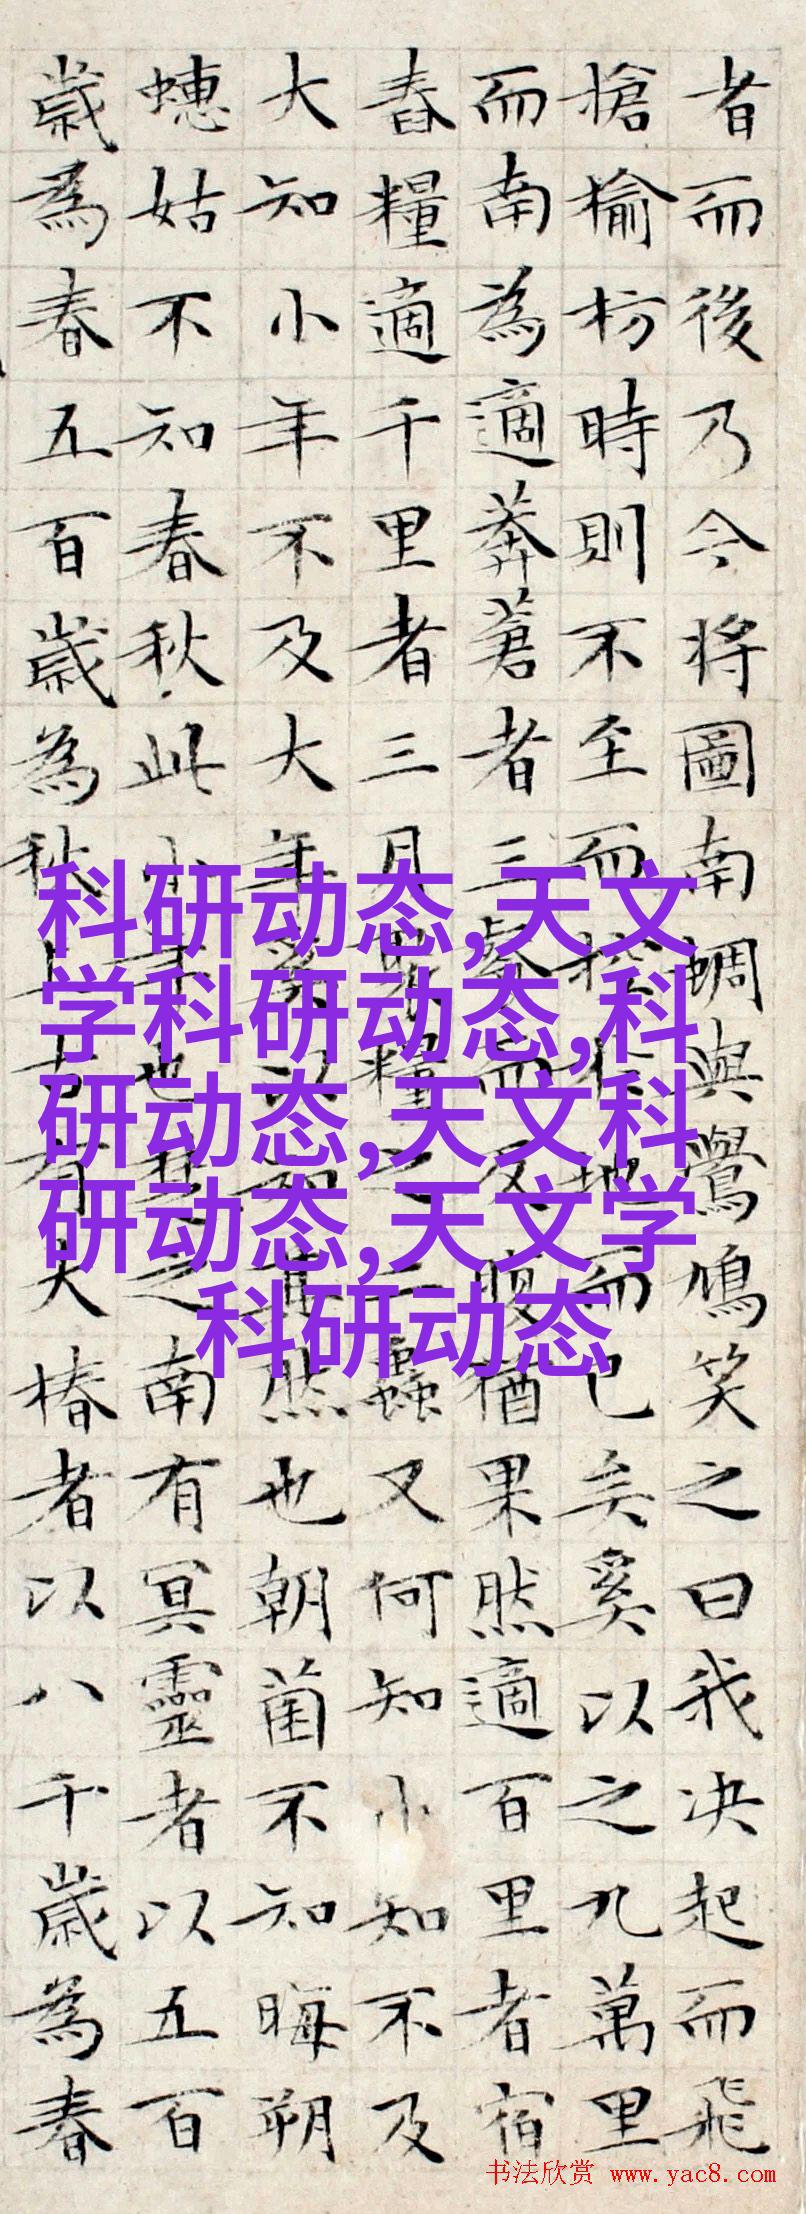 者而後乃今將圖南蜩與鷽鳩笑之曰我决起而飛
搶榆枋時則不至而控於地而已矣奚以之九萬里
而南為適莽蒼者三餐而反腹猶果然適百里者宿
舂糧適千里者三月聚糧之二蟲又何知小知不及
大知小年不及大年奚以知其然也朝菌不知晦朔
蟪姑不知春秋此小年也楚之南有冥靈者以五百
歲為春五百歲為秋上古有大椿者以八千歲為春
科研动态,天文
学科研动态,科
研动态,天文科
研动态,天文学
科研动态
书法欣赏 www.yac8.com